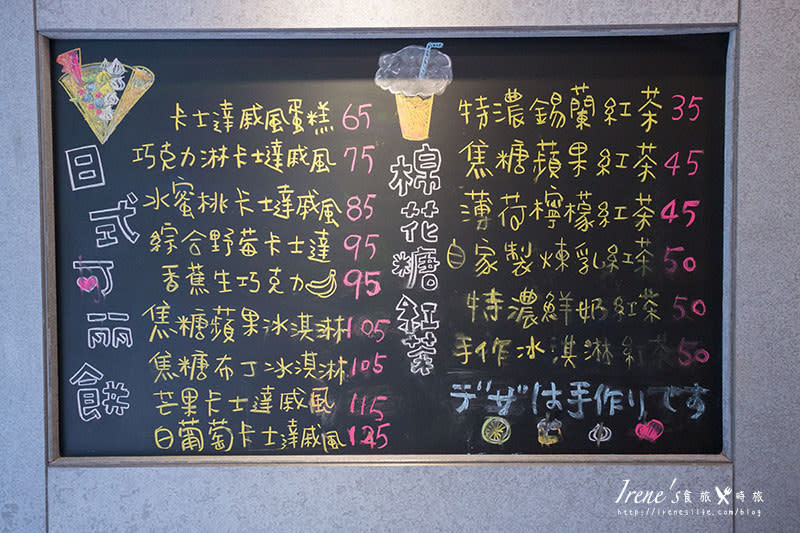 日式可丽餅
卡士達戚風蛋糕 65
巧克力淋卡士達戚風 75
水蜜桃卡士達戚風 85
綜合野莓卡士達 95
香蕉生巧克力 95
焦糖蘋果冰淇淋 105
焦糖布丁冰淇淋 105
芒果卡士達戚風 115
白葡萄卡士達戚風 125
棉花糖紅茶
特濃錫蘭紅茶 35
焦糖蘋果紅茶 45
薄荷檸檬紅茶 45
自家製煉乳紅茶 50
特濃鮮奶紅茶 50
手作冰淇淋紅茶 50
デザは手作りです
Irene's 食旅 時旅
http://ireneslife.com/blog